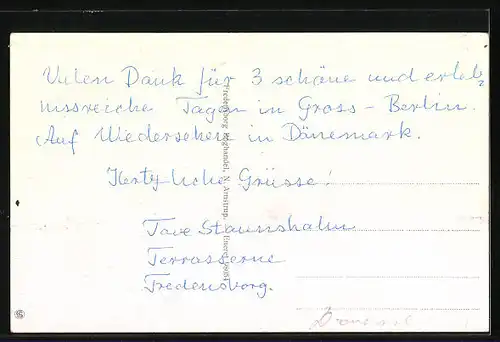 Vielen Dank für 3 schöne und erleb-
nissreiche Tagen in Gross-Berlin.
Auf Wiedersehen in Dänemark.
Hertzliche Grüsse!
Tove Staunsholm
Terrasserne
Fredensborg.
Fredensborg Boghandel, N. Amstrup